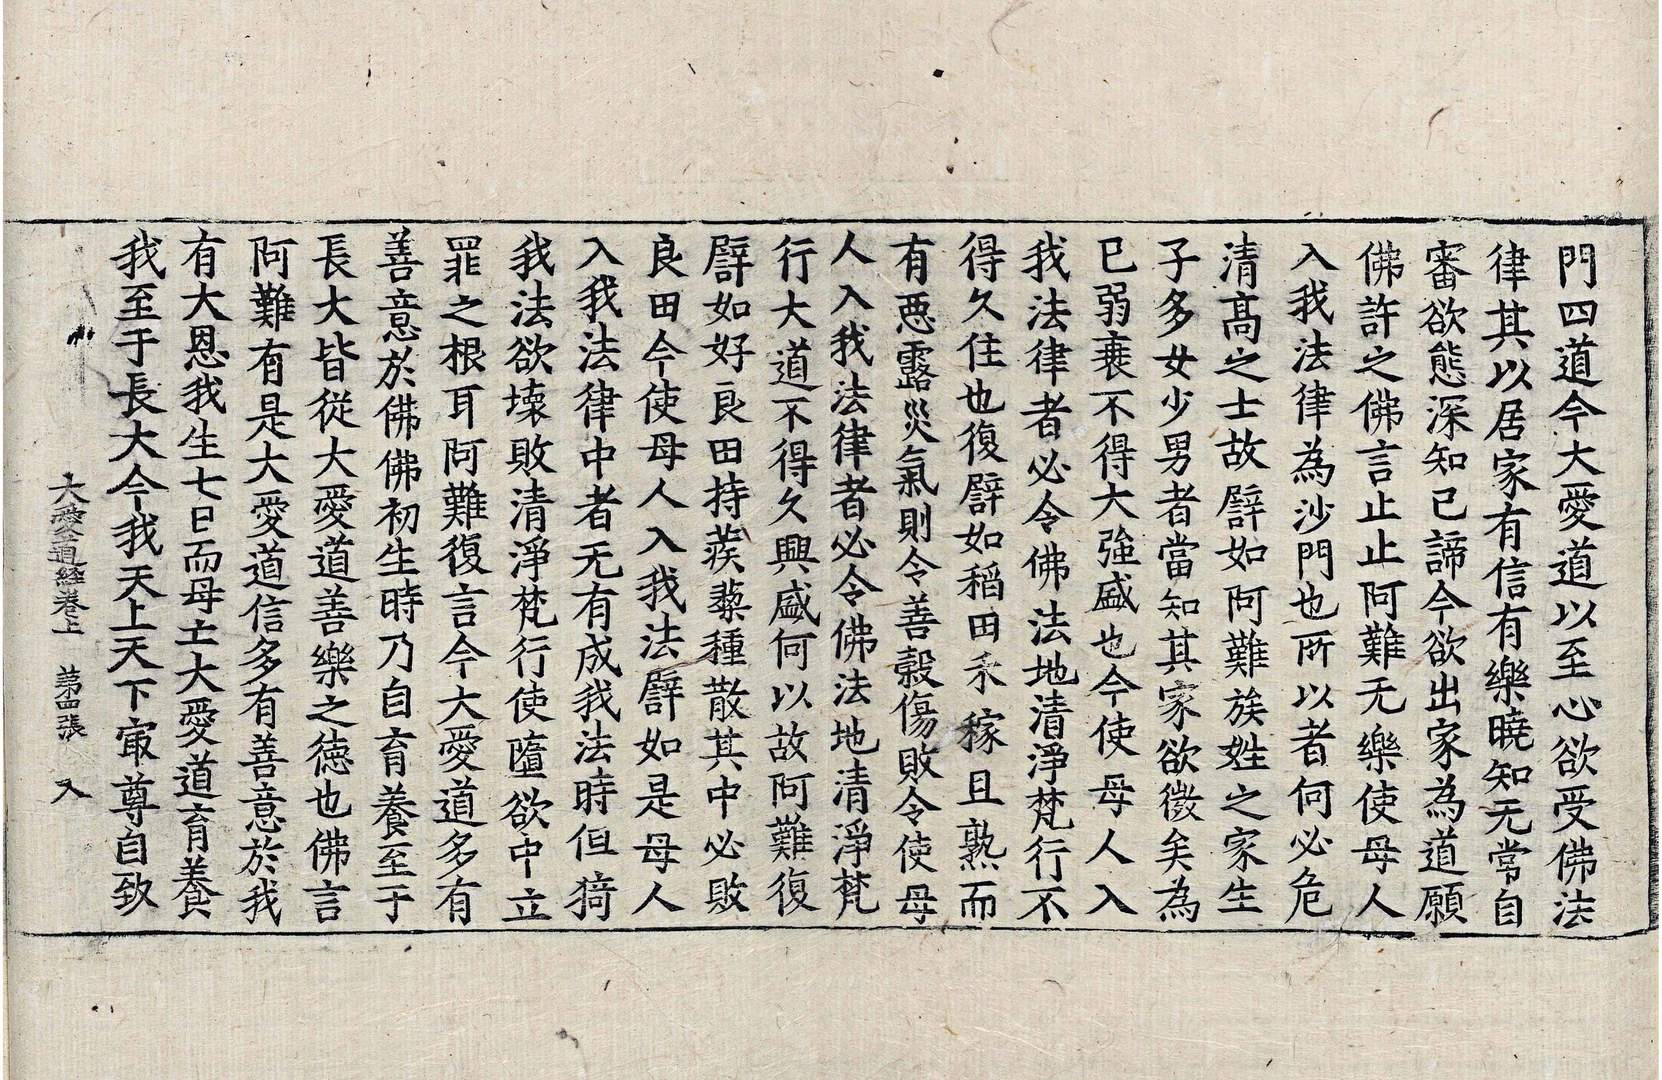 門四道今大愛道以至心欲受佛法
律其以居家有信有樂曉知无常自
審欲態深知已諦今欲出家為道願
佛許之佛言止止阿難无樂使母人
入我法律為沙門也所以者何必危
清高之士故譬如阿難族姓之家生
子多女少男者當知其家欲微矣為
已弱衰不得大強盛也今使母人入
我法律者必令佛法地清淨梵行不
得久住也復譬如稻田禾稼且熟而
有惡露災氣則令善穀傷敗令使母
人入我法律者必令佛法地清淨梵
行大道不得久興盛何以故阿難復
譬如好良田持蒺藜種散其中必敗
良田今使母人入我法譬如是母人
入我法律中者无有成我法時但猗
我法欲壞敗清淨梵行使墮欲中立
罪之根耳阿難復言今大愛道多有
善意於佛佛初生時乃自育養至于
長大皆從大愛道善樂之德也佛言
阿難有是大愛道信多有善意於我
有大恩我生七日而母亡大愛道育養
我至于長大今我天上天下㝡尊自致
大愛道経卷上 第四張 又